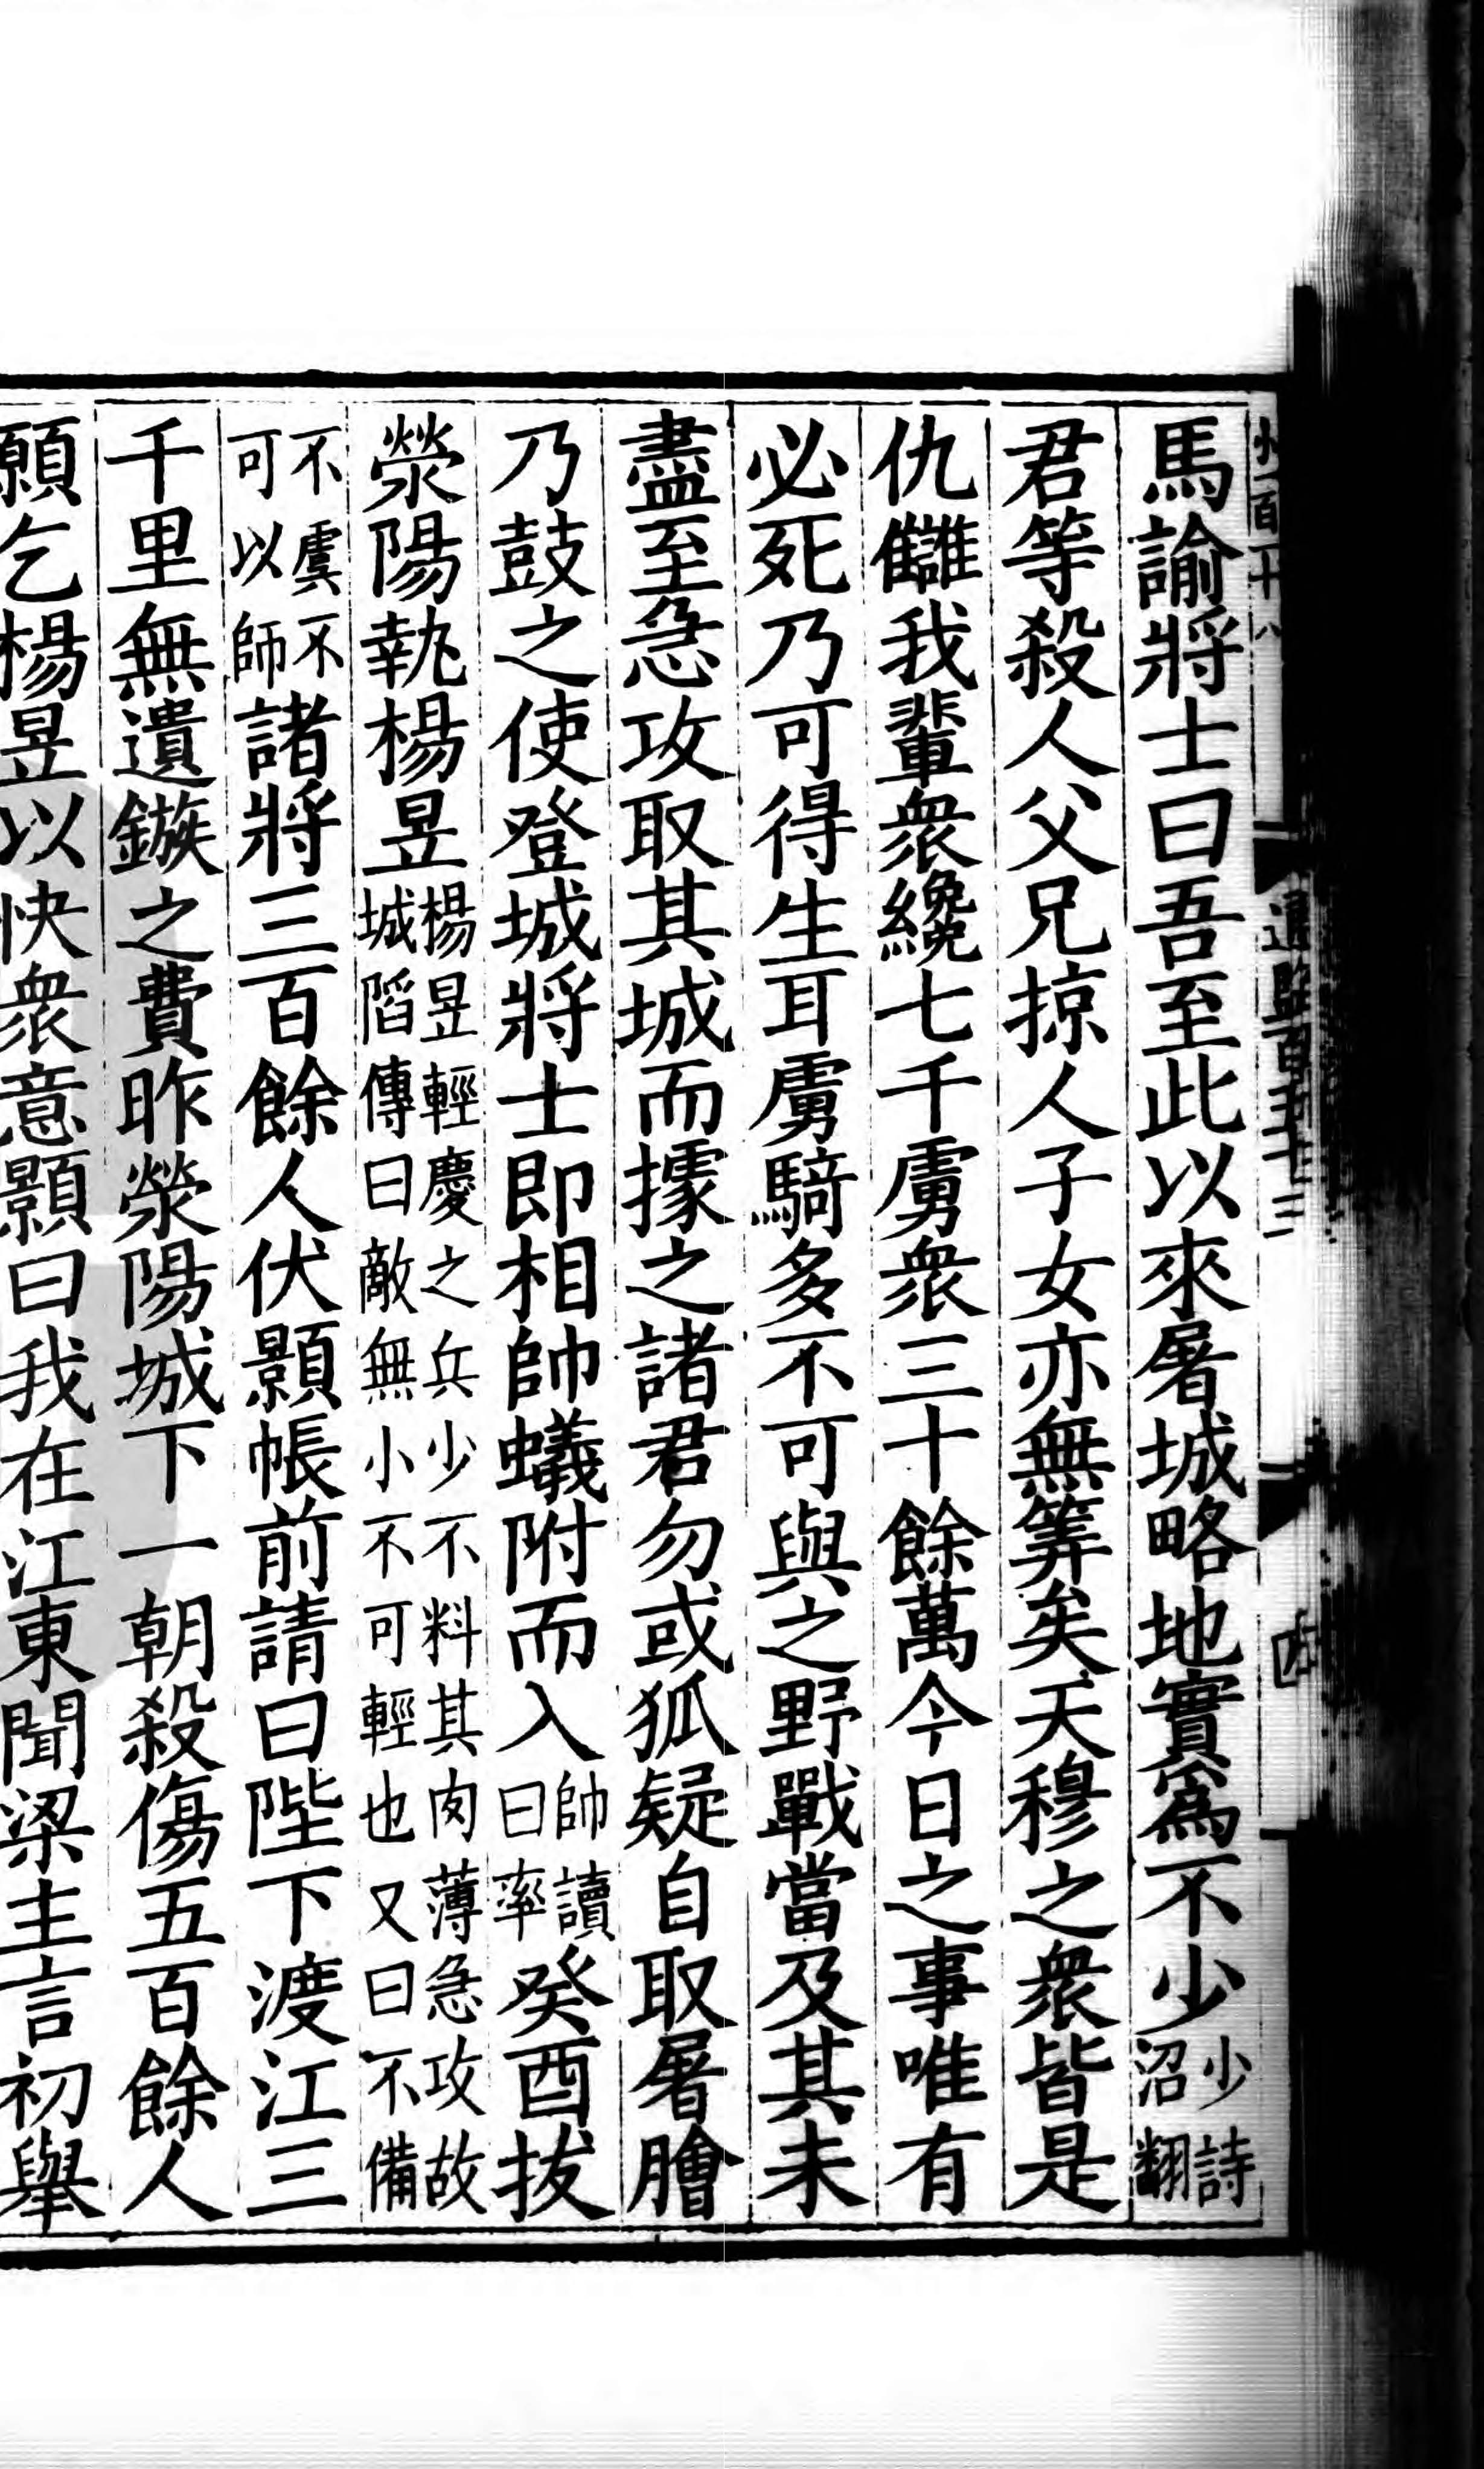 馬諭將士曰吾至此以來屠城略地實爲不少少詩沼翻
君等殺人父兄掠人子女亦無筭矣天穆之衆皆是
仇讎我輩衆纔七千虜衆三十餘萬今日之事唯有
必死乃可得生耳虜騎多不可與之野戰當及其未
盡至急攻取其城而據之諸君勿或狐疑自取屠膾
乃鼓之使登城將士即相帥蟻附而入帥讀曰率癸酉拔
滎陽執楊昱楊昱輕慶之兵少不料其肉薄急攻故城䧟傳曰敵無小不可輕也又曰不備
不虞不可以師諸將三百餘人伏顥帳前請曰陛下渡江三
千里無遺鏃之費昨滎陽城下一朝殺傷五百餘人
願乞楊昱以快衆意顥曰我在江東聞梁主言初舉